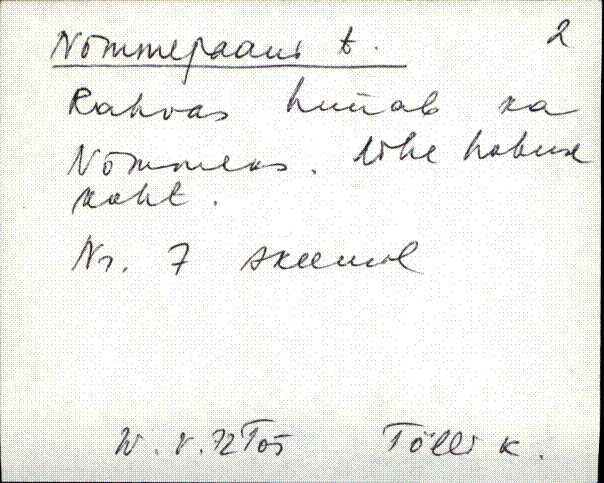 Nõmmepaanu t. 2
Rahvas hüüab ka
Nõmmeks. Ühe hobuse
koht.
Nr. 7 skeemil
W. V. 72 Tõs Tõlli k.